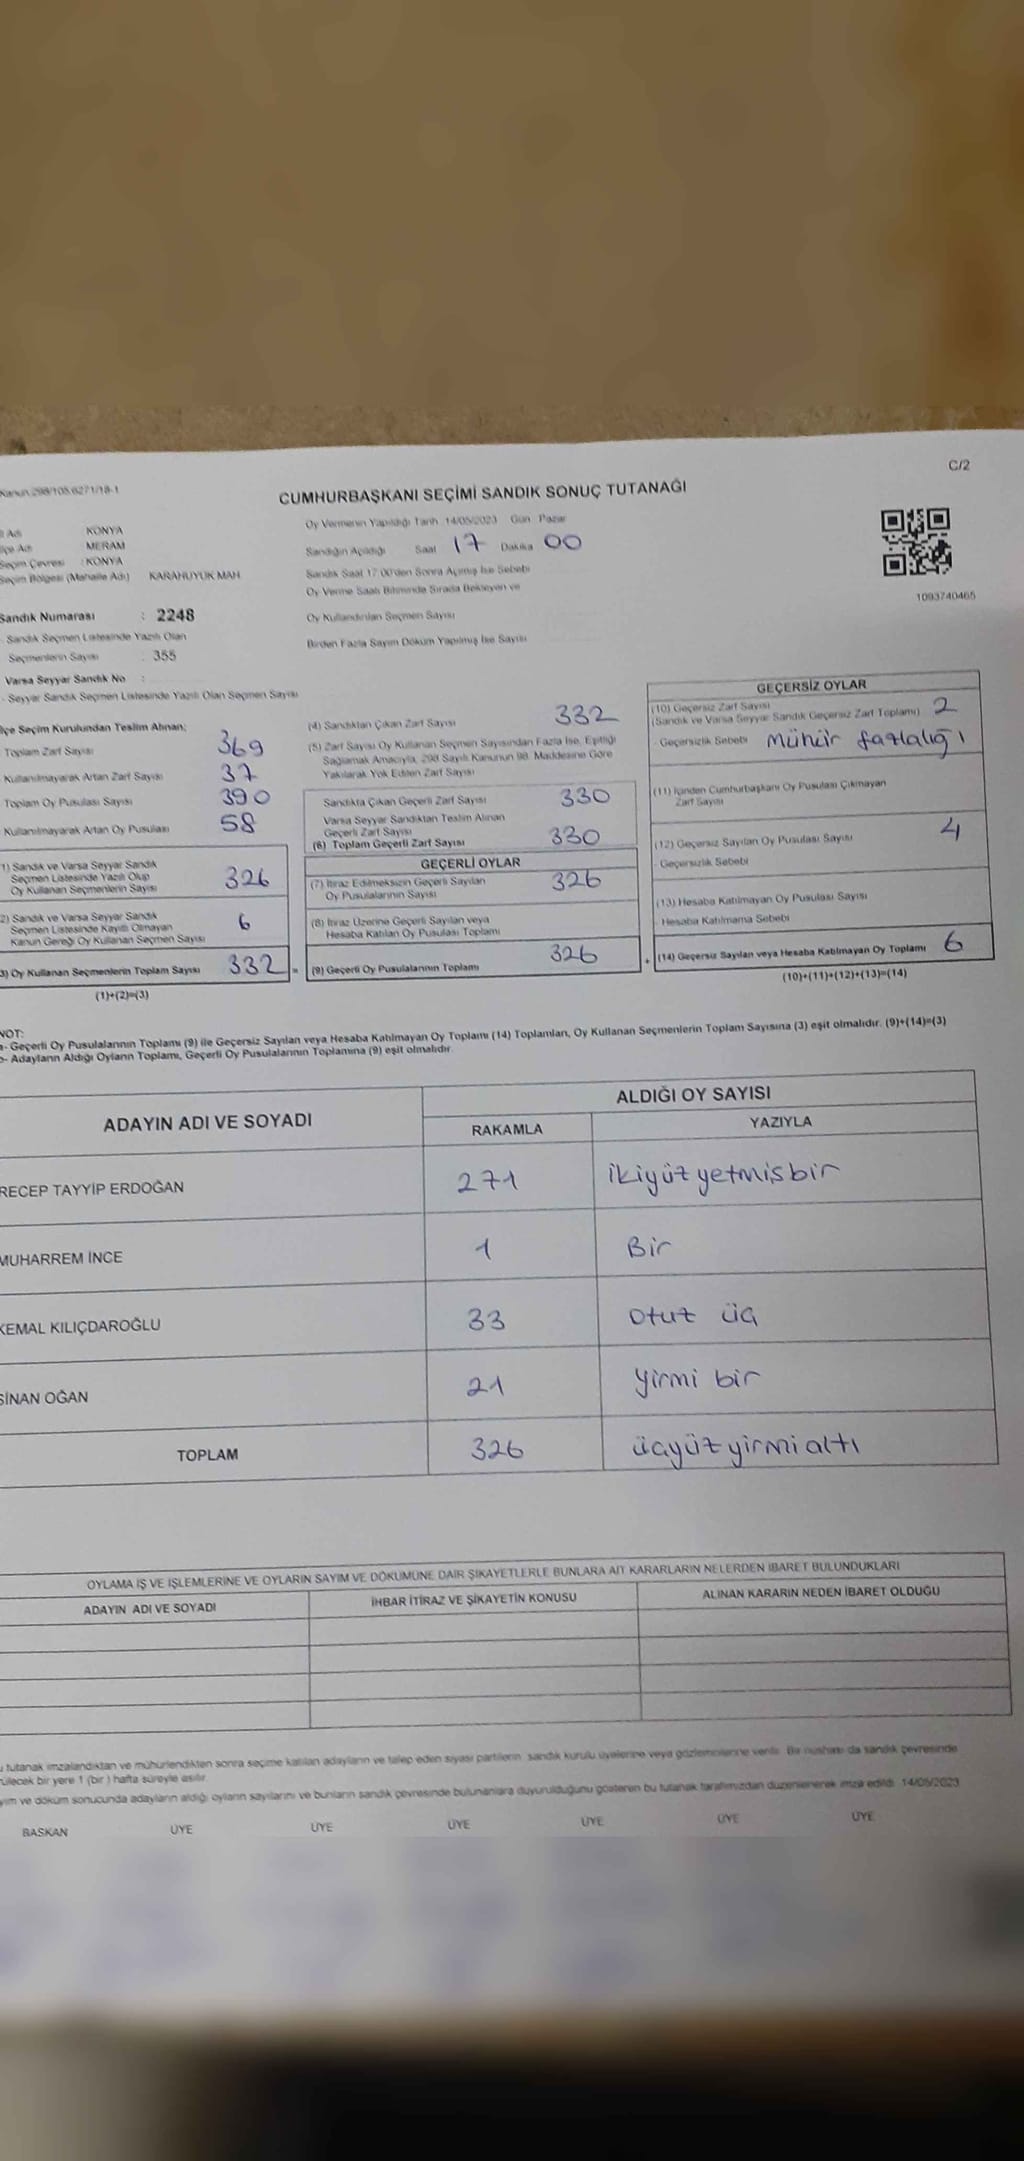 Kanun:298/105,6271/18-1
C/2
CUMHURBAŞKANI SEÇİMİ SANDIK SONUÇ TUTANAĞI
1093740465
l Adı KONYA
lçe Adı MERAM
Seçim Çevresi : KONYA
Seçim Bölgesi (Mahalle Adı) KARAHÜYÜK MAH
Sandık Numarası : 2248
- Sandık Seçmen Listesinde Yazılı Olan
Seçmenlerin Sayısı : 355
Varsa Seyyar Sandık No :
- Seyyar Sandık Seçmen Listesinde Yazılı Olan Seçmen Sayısı
Oy Vermenin Yapıldığı Tarih 14/05/2023 Gün Pazar
Sandığın Açıldığı Saat 17 Dakika 00
Sandık Saat 17:00'den Sonra Açılmış İse Sebebi
Oy Verme Saati Bitiminde Sırada Bekleyen ve
Oy Kullandırılan Seçmen Sayısı
Birden Fazla Sayım Döküm Yapılmış İse Sayısı
lçe Seçim Kurulundan Teslim Alınan;
Toplam Zarf Sayısı 369
Kullanılmayarak Artan Zarf Sayısı 37
Toplam Oy Pusulası Sayısı 390
Kullanılmayarak Artan Oy Pusulası 58
1) Sandık ve Varsa Seyyar Sandık
Seçmen Listesinde Yazılı Olup
Oy Kullanan Seçmenlerin Sayısı 326
2) Sandık ve Varsa Seyyar Sandık
Seçmen Listesinde Kayıtlı Olmayan
Kanun Gereği Oy Kullanan Seçmen Sayısı 6
3) Oy Kullanan Seçmenlerin Toplam Sayısı 332 =
(1)+(2)=(3)
(4) Sandıktan Çıkan Zarf Sayısı 332
(5) Zarf Sayısı Oy Kullanan Seçmen Sayısından Fazla İse, Eşitliği
Sağlamak Amacıyla, 298 Sayılı Kanunun 98. Maddesine Göre
Yakılarak Yok Edilen Zarf Sayısı
Sandıkta Çıkan Geçerli Zarf Sayısı 330
Varsa Seyyar Sandıktan Teslim Alınan
Geçerli Zarf Sayısı
(6) Toplam Geçerli Zarf Sayısı 330
GEÇERLİ OYLAR
(7) İtiraz Edilmeksizin Geçerli Sayılan
Oy Pusulalarının Sayısı 326
(8) İtiraz Üzerine Geçerli Sayılan veya
Hesaba Katılan Oy Pusulası Toplamı
(9) Geçerli Oy Pusulalarının Toplamı 326 +
GEÇERSİZ OYLAR
(10) Geçersiz Zarf Sayısı
(Sandık ve Varsa Seyyar Sandık Geçersiz Zarf Toplamı) 2
- Geçersizlik Sebebi Mühür fazlalığı
(11) İçinden Cumhurbaşkanı Oy Pusulası Çıkmayan
Zarf Sayısı
(12) Geçersiz Sayılan Oy Pusulası Sayısı 4
- Geçersizlik Sebebi
(13) Hesaba Katılmayan Oy Pusulası Sayısı
- Hesaba Katılmama Sebebi
(14) Geçersiz Sayılan veya Hesaba Katılmayan Oy Toplamı 6
(10)+(11)+(12)+(13)=(14)
NOT:
a- Geçerli Oy Pusulalarının Toplamı (9) ile Geçersiz Sayılan veya Hesaba Katılmayan Oy Toplamı (14) Toplamları, Oy Kullanan Seçmenlerin Toplam Sayısına (3) eşit olmalıdır. (9)+(14)=(3)
b- Adayların Aldığı Oyların Toplamı, Geçerli Oy Pusulalarının Toplamına (9) eşit olmalıdır
ADAYIN ADI VE SOYADI ALDIĞI OY SAYISI
RAKAMLA YAZIYLA
RECEP TAYYİP ERDOĞAN 271 ikiyüz yetmişbir
MUHARREM İNCE 1 Bir
KEMAL KILIÇDAROĞLU 33 otuz üç
SİNAN OĞAN 21 yirmi bir
TOPLAM 326 üçyüz yirmi altı
OYLAMA İŞ VE İŞLEMLERİNE VE OYLARIN SAYIM VE DÖKÜMÜNE DAİR ŞİKAYETLERLE BUNLARA AİT KARARLARIN NELERDEN İBARET BULUNDUKLARI
ADAYIN ADI VE SOYADI İHBAR İTİRAZ VE ŞİKAYETİN KONUSU ALINAN KARARIN NEDEN İBARET OLDUĞU
u tutanak imzalandıktan ve mühürlendikten sonra seçime katılan adayların ve talep eden siyasi partilerin sandık kurulu üyelerine veya gözlemcilerine verilir. Bir nüshası da sandık çevresinde
rülecek bir yere 1 (bir ) hafta süreyle asılır.
yım ve döküm sonucunda adayların aldığı oyların sayılarını ve bunların sandık çevresinde bulunanlara duyurulduğunu gösteren bu tutanak tarafımızdan düzenlenerek imza edildi. 14/05/2023
BAŞKAN ÜYE ÜYE ÜYE ÜYE ÜYE ÜYE